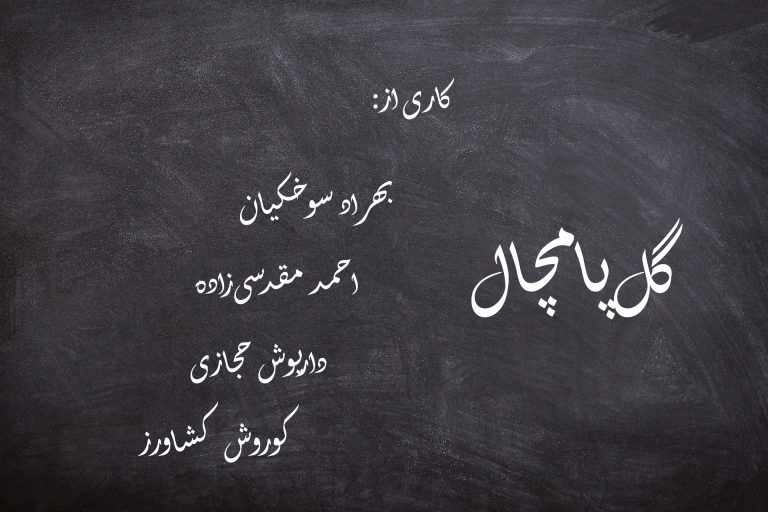 گل پامچال
کاری از:
بهراد سوخکیان
احمد مقدسی‌زاده
داریوش حجازی
کوروش کشاورز